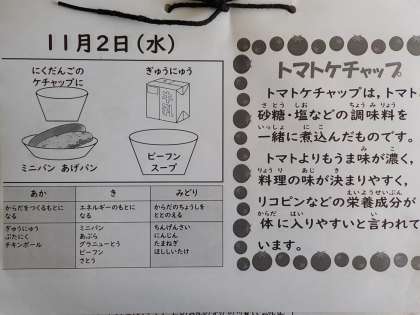 11月2日(水)
にくだんごの
ケチャップに
ぎゅうにゅう
牛乳
ミニパン あげパン
ビーフン
スープ
あか
き
みどり
からだをつくるもとに
なる
エネルギーのもとに
なる
からだのちょうしを
ととのえる
ぎゅうにゅう
ぶたにく
チキンボール
ミニパン
あぶら
グラニューとう
ビーフン
さとう
ちんげんさい
にんじん
たまねぎ
ほししいたけ
トマトケチャップ
トマトケチャップは，トマト
さとう しお ちょうみりょう
砂糖・塩などの調味料を
いっしょ にこ
一緒に煮込んだものです。
み こ
トマトよりもうま味が濃く，
りょうり あじ き
料理の味が決まりやすく，
えいようせいぶん
リコピンなどの栄養成分が
からだ はい い
体に入りやすいと言われて
います。